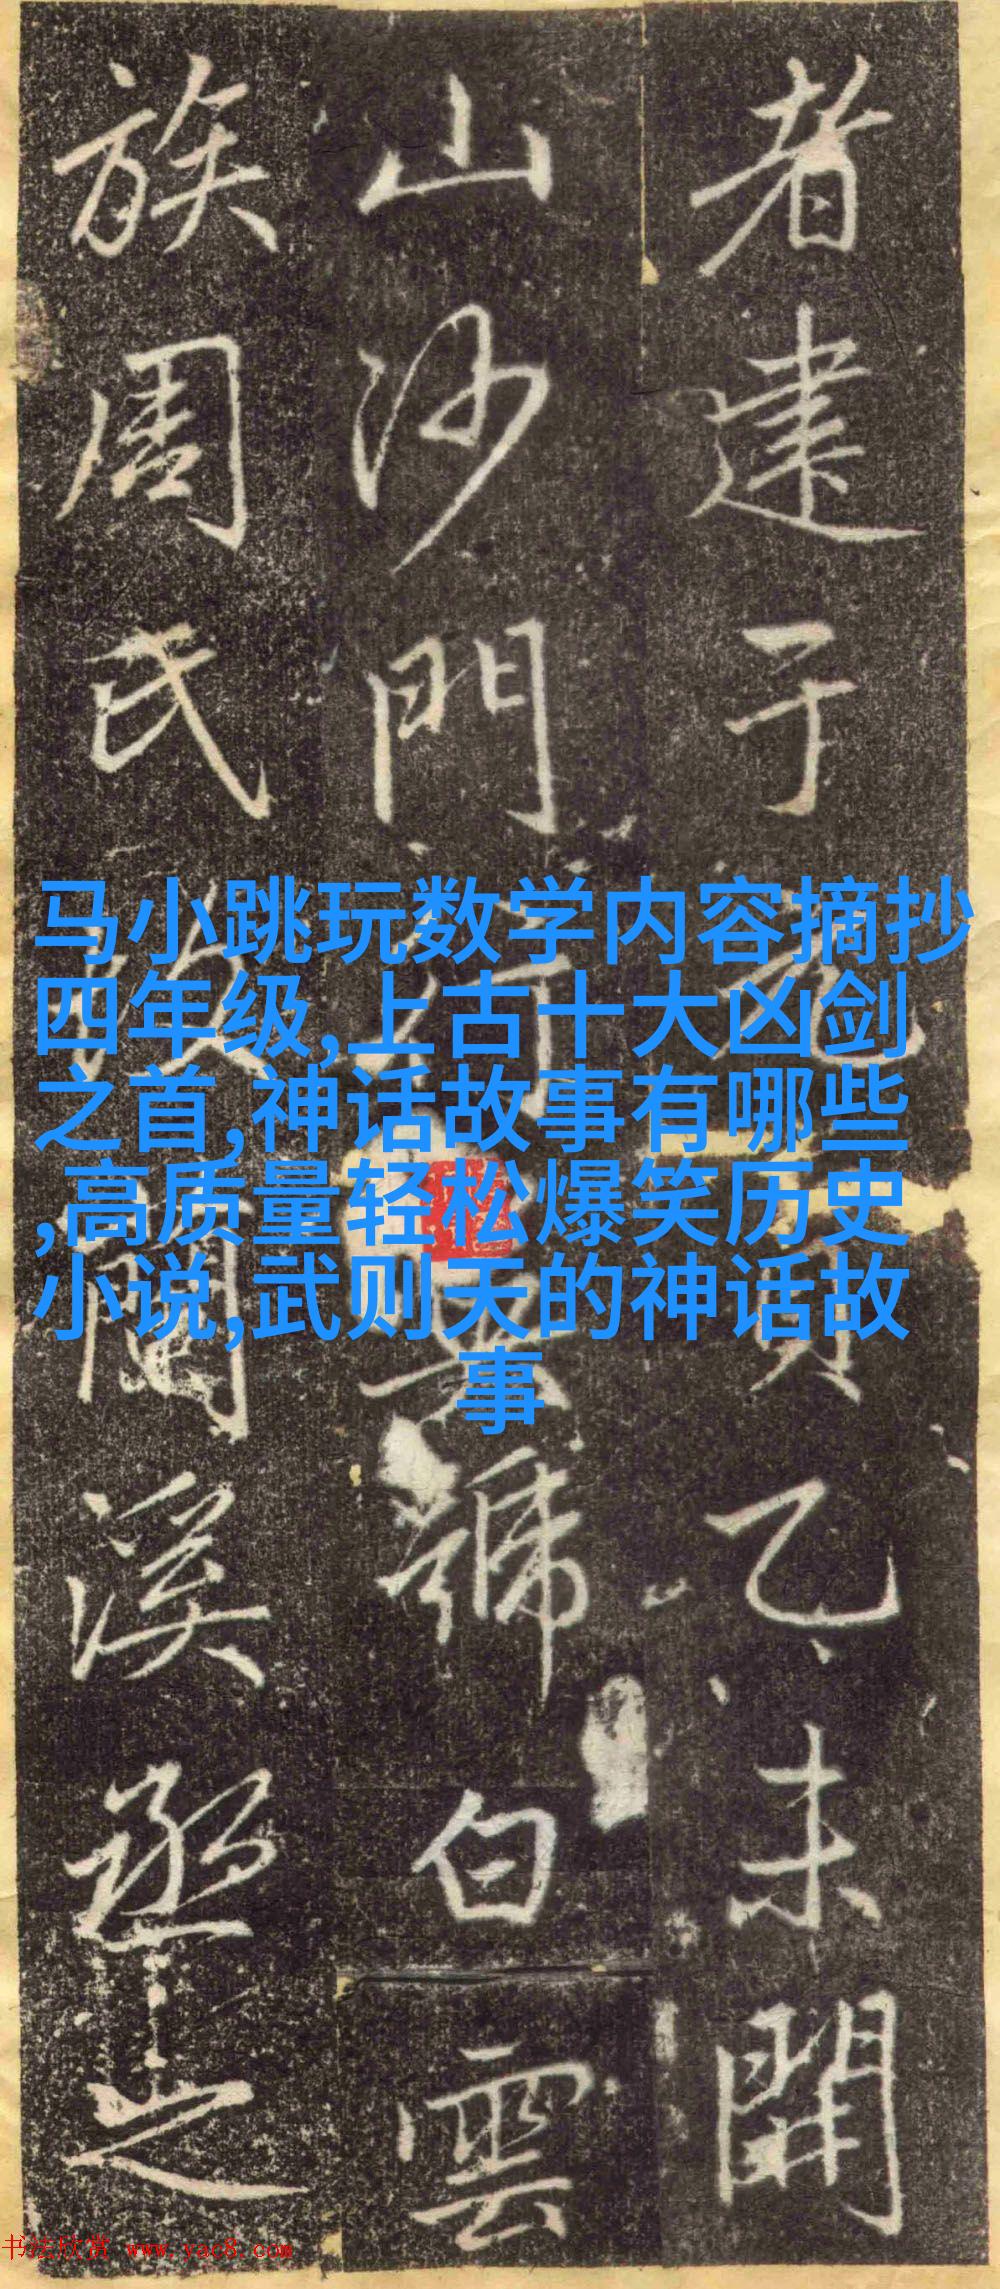 者建于元貞乙未開
山沙門
號白雲
族周氏
蘭溪丞之
马小跳玩数学内容摘抄
四年级,上古十大凶剑
之首,神话故事有哪些
,高质量轻松爆笑历史
小说,武则天的神话故
事
书法欣赏 www.yac8.com